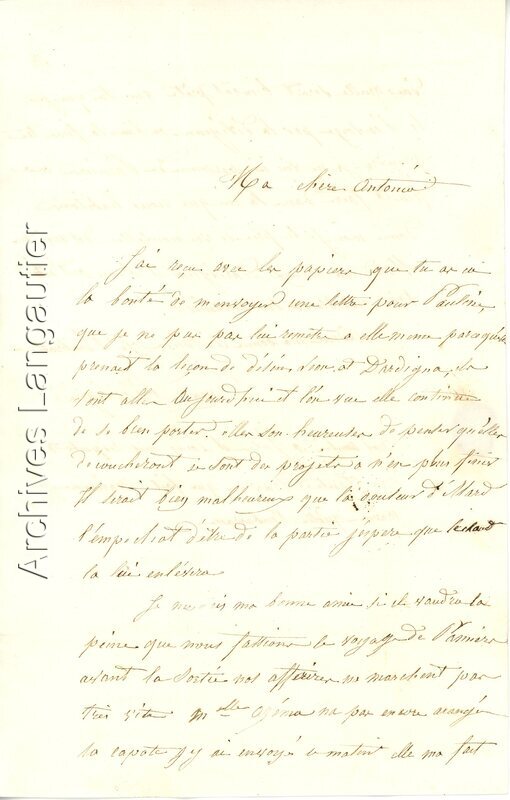 Ma chère Antonia
J'ai reçu avec les papiers que tu as eu
la bonté de m'envoyer une lettre pour Pauline,
que je ne pas lui remetre a elle meme parcequ'elle
prenait la leçon de dessin, Leon at Dardigna, ils
sont aller aujourd'hui et l'on vue elle continue
de se bien porter. elles son heureuses de penser qu'elles
decoucheront ce sont des projets a n'en pour finir
Il serait bien malheureux que la douleur d'
l'empechat d'être de la partie j'espere que le chaud
la lui enlevera
Je ne sais ma bonne amie si il vaudra la
peine que nous fassions le voyage de Pamiers
avant la sortie nos affaires ne marchent pas
tres vite Melle Azéma na pas encore arangé
la capote j'y ai envoyé ce matin elle ma fait
Archives Langautier